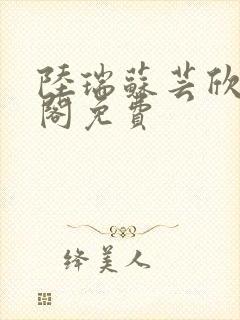 陸瑞蘇芸欣
閣免費
绛美人